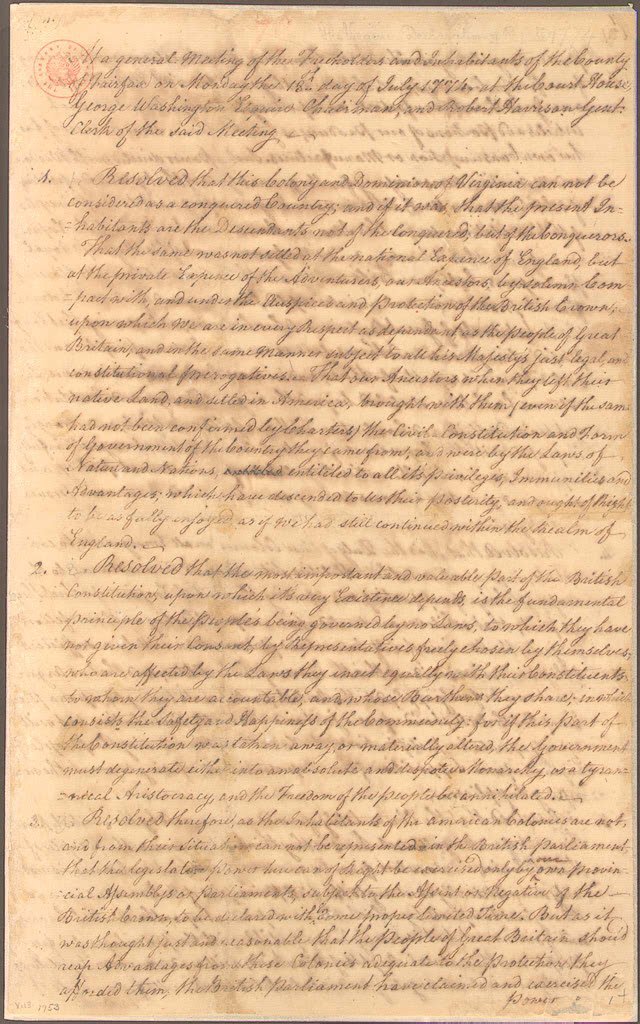 At a general Meeting of the Freeholders and Inhabitants of the County
of Fairfax on Monday the 18th. day of July 1774, at the Court House,
George Washington Esquire Chairman, and Robert Harrison Gent.
Clerk of the said Meeting
1. Resolved that this Colony and Dominion of Virginia can not be
considered as a conquered Country; and if it was, that the present In-
=habitants are the Descendants not of the Conquered, but of the Conquerors.
That the same was not setled at the national Expence of England, but
at the private Expence of the Adventurers, our Ancestors, by solemn Com-
=pact with, and under the Auspices and Protection of the British Crown;
upon which we are in every Respect as dependent as the People of Great
Britain, and in the same Manner subject to all his Majesty's just, legal, and
constitutional Prerogatives. That our Ancestors, when they left their
native Land, and setled in America, brought with them (even if the same
had not been confirmed by Charters) the Civil-Constitution and Form
of Government of the Country they came from; and were by the Laws of
Nature and Nations, entitiled to all its Privileges, Immunities and
Advantages; which have descended to us their Posterity, and ought of Right
to be as fully enjoyed, as if we had still continued within the Realm of
England.
2. Resolved that the most important and valuable Part of the British
Constitution, upon which its very Existence depends, is the fundamental
Principle of the People's being governed by no Laws, to which they have
not given their Consent, by Representatives freely chosen by themselves;
who are affected by the Laws they enact equally with their Constituents;
to whom they are accountable, and whose Burthens they share; in which
consists the Safety and Happiness of the Community: for if this Part of
the Constitution was taken away, or materially altered, the Government
must degenerate either into an absolute and despotic Monarchy, or a tyran-
=nical Aristocracy, and the Freedom of the People be annihilated.
3. Resolved therefore, as the Inhabitants of the american Colonies are not,
and from their Situation can not be represented in the British Parliament,
that the legislative Power here can of Right be exercised only by our own Provin-
=cial Assemblys or Parliaments, subject to the Assent or Negative of the
British Crown, to be declared within some proper limited Time. But as it
was thought just and reasonable that the People of Great Britain should
reap Advantages from these Colonies adequate to the Protection they
afforded them, the British Parliament have claimed and exercised the
Power
1753